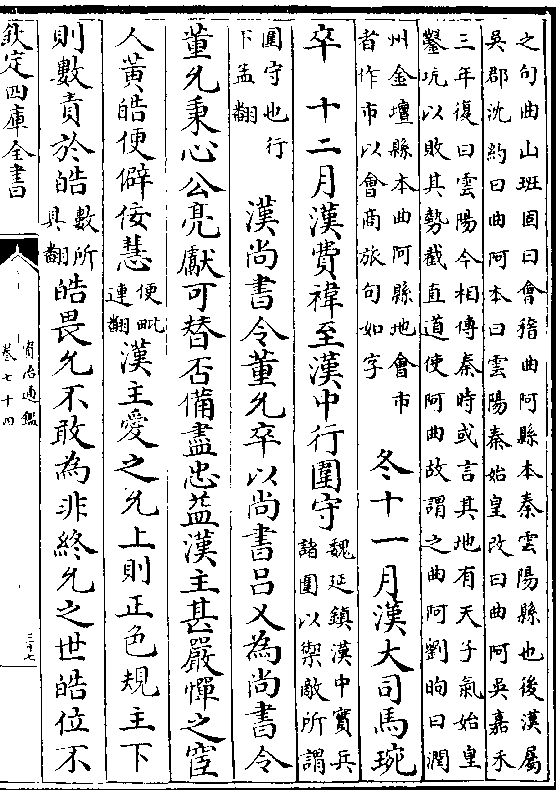 之句曲山班固曰會稽曲阿縣本秦雲陽縣也後漢屬
吳郡沈約曰曲阿本曰雲陽秦始皇改曰曲阿吳嘉禾
三年復曰雲陽今相傳秦時或言其地有天子氣始皇
鑿坑以敗其勢截直道使阿曲故謂之曲阿劉昫曰潤
州金壇縣本曲阿縣地會市
者作市以會商旅句如字
冬十一月漢大司馬琬
卒 十二月漢費禕至漢中行圍守
魏延鎮漢中實兵
諸圍以禦敵所謂
圍守也行
下孟翻
漢尚書令董允卒以尚書呂乂為尚書令
董允秉心公亮獻可替否備盡忠益漢主甚嚴憚之宦
人黃皓便僻佞慧
便毗
連翻
漢主愛之允上則正色規主下
則數責於皓
數所
具翻
皓畏允不敢為非終允之世皓位不
欽定四庫全書
資治通鑑
卷七十四
三十七